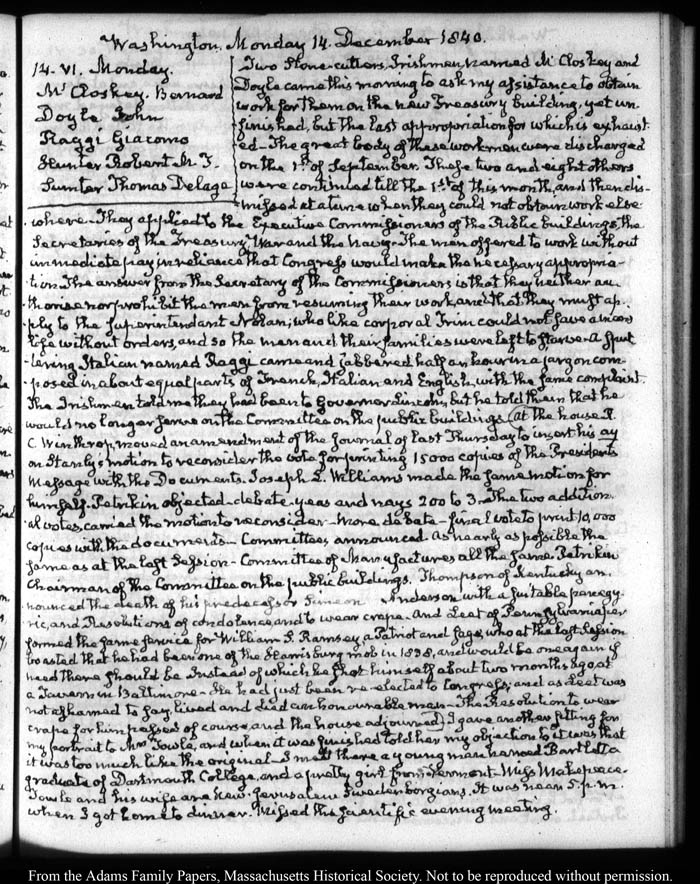 Washington, Monday 14. December 1840.
14. VI. Monday.
McCloskey. Bernard
Doyle John
Raggi Giacomo
Hunter Robert M. T.
Sumter Thomas Delage
Two Stone-cutters, Irishmen named McCloskey and
Doyle came this morning to ask my assistance to obtain
work for them on the new Treasury building, yet un-
finished, but the last appropriation for which is exhaust-
ed. The great body of these workmen were discharged
on the 1st of September. These two and eight others
were continued till the 1st of this month, and then dis-
missed at a time when they could not obtain work else-
where. They applied to the Executive Commissioners of the Public buildings, the
Secretaries of the Treasury, War and the Navy. The men offered to work without
immediate pay in reliance that Congress would make the necessary appropria-
tion. The answer from the Secretary of the Commissioners is that they neither au-
thorise nor prohibit the men from resuming their work, and that they must ap-
ply to the Superintendant Nolan; who like corporal Trim could not save a
life without orders, and so the men and their families were left to starve. A sput-
tering Italian named Raggi came and jabbered half an hour in a jargon com-
posed in about equal parts of French, Italian and English, with the same complaint.
The Irishmen told me they had been to Governor Lincoln, but he told them that he
would no longer serve on the Committee on the public buildings (at the house R.
C. Winthrop moved an amendment of the Journal of last Thursday to insert his ay
on Stanly's motion to reconsider the vote for printing 15000 copies of the Presidents
Message with the Documents. Joseph L. Williams made the same motion for
himself. Petrikin objected—debate—yeas and nays 200 to 3. The two addition-
al votes, carried the motion to reconsider—more debate—final vote to print 10,000
copies with the documents—Committees, announced as nearly as possible the
same as at the last Session—Committee of Manufactures all the same. Petrikin
Chairman of the Committee on the public buildings. Thompson of Kentucky an-
nounced the death of his predecessor Simeon Anderson with a suitable panegy-
ric, and Resolutions of condolence, and to wear crape. And Leet of Pennsylvania per-
formed the same service for William S. Ramsey a Patriot and Sage, who at the last Session
boasted that he had been one of the Harrisburg mob in 1838, and would be one again if
need there should be. Instead of which he shot himself about two months ago at
a Tavern in Baltimore—He had just been re-elected to Congress; and as Leet was
not ashamed to say, lived and died an honourable man—The Resolution to wear
crape for him passed of course, and the house adjourned) I gave another sitting for
my portrait to Mrs Towle, and when it was finished told her my objection to it was that
it was too much like the original—I met there a young man named Bartlett a
graduate of Dartmouth College, and a pretty girl from Vermont—Miss Makepeace.
Towle and his wife are New-Jerusalem Swedenborgians. It was near 5. p.m.
when I got home to dinner. Missed the scientific evening meeting.
From the Adams Family Papers, Massachusetts Historical Society. Not to be reproduced without permission.